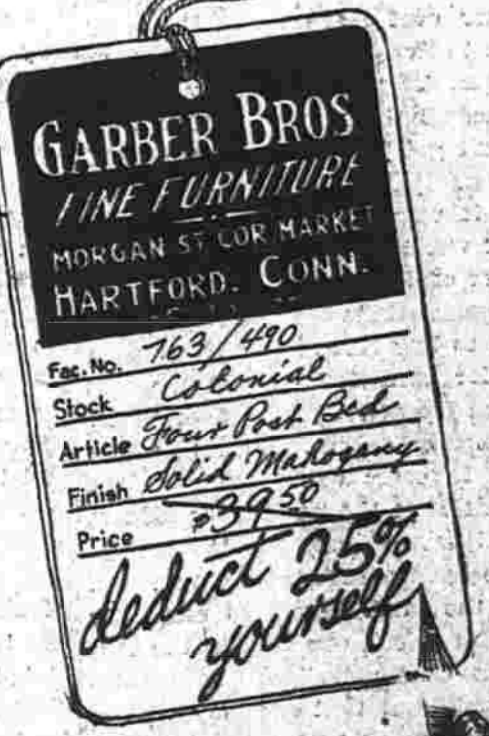 GARBER BROS
FINE FURNITURE
MORGAN ST COR MARKET
HARTFORD. CONN.
Fac. No. 763/490
Stock Colonial
Article Four Post Bed
Finish Solid Mahogany
Price $39.50
deduct 25%
yourself